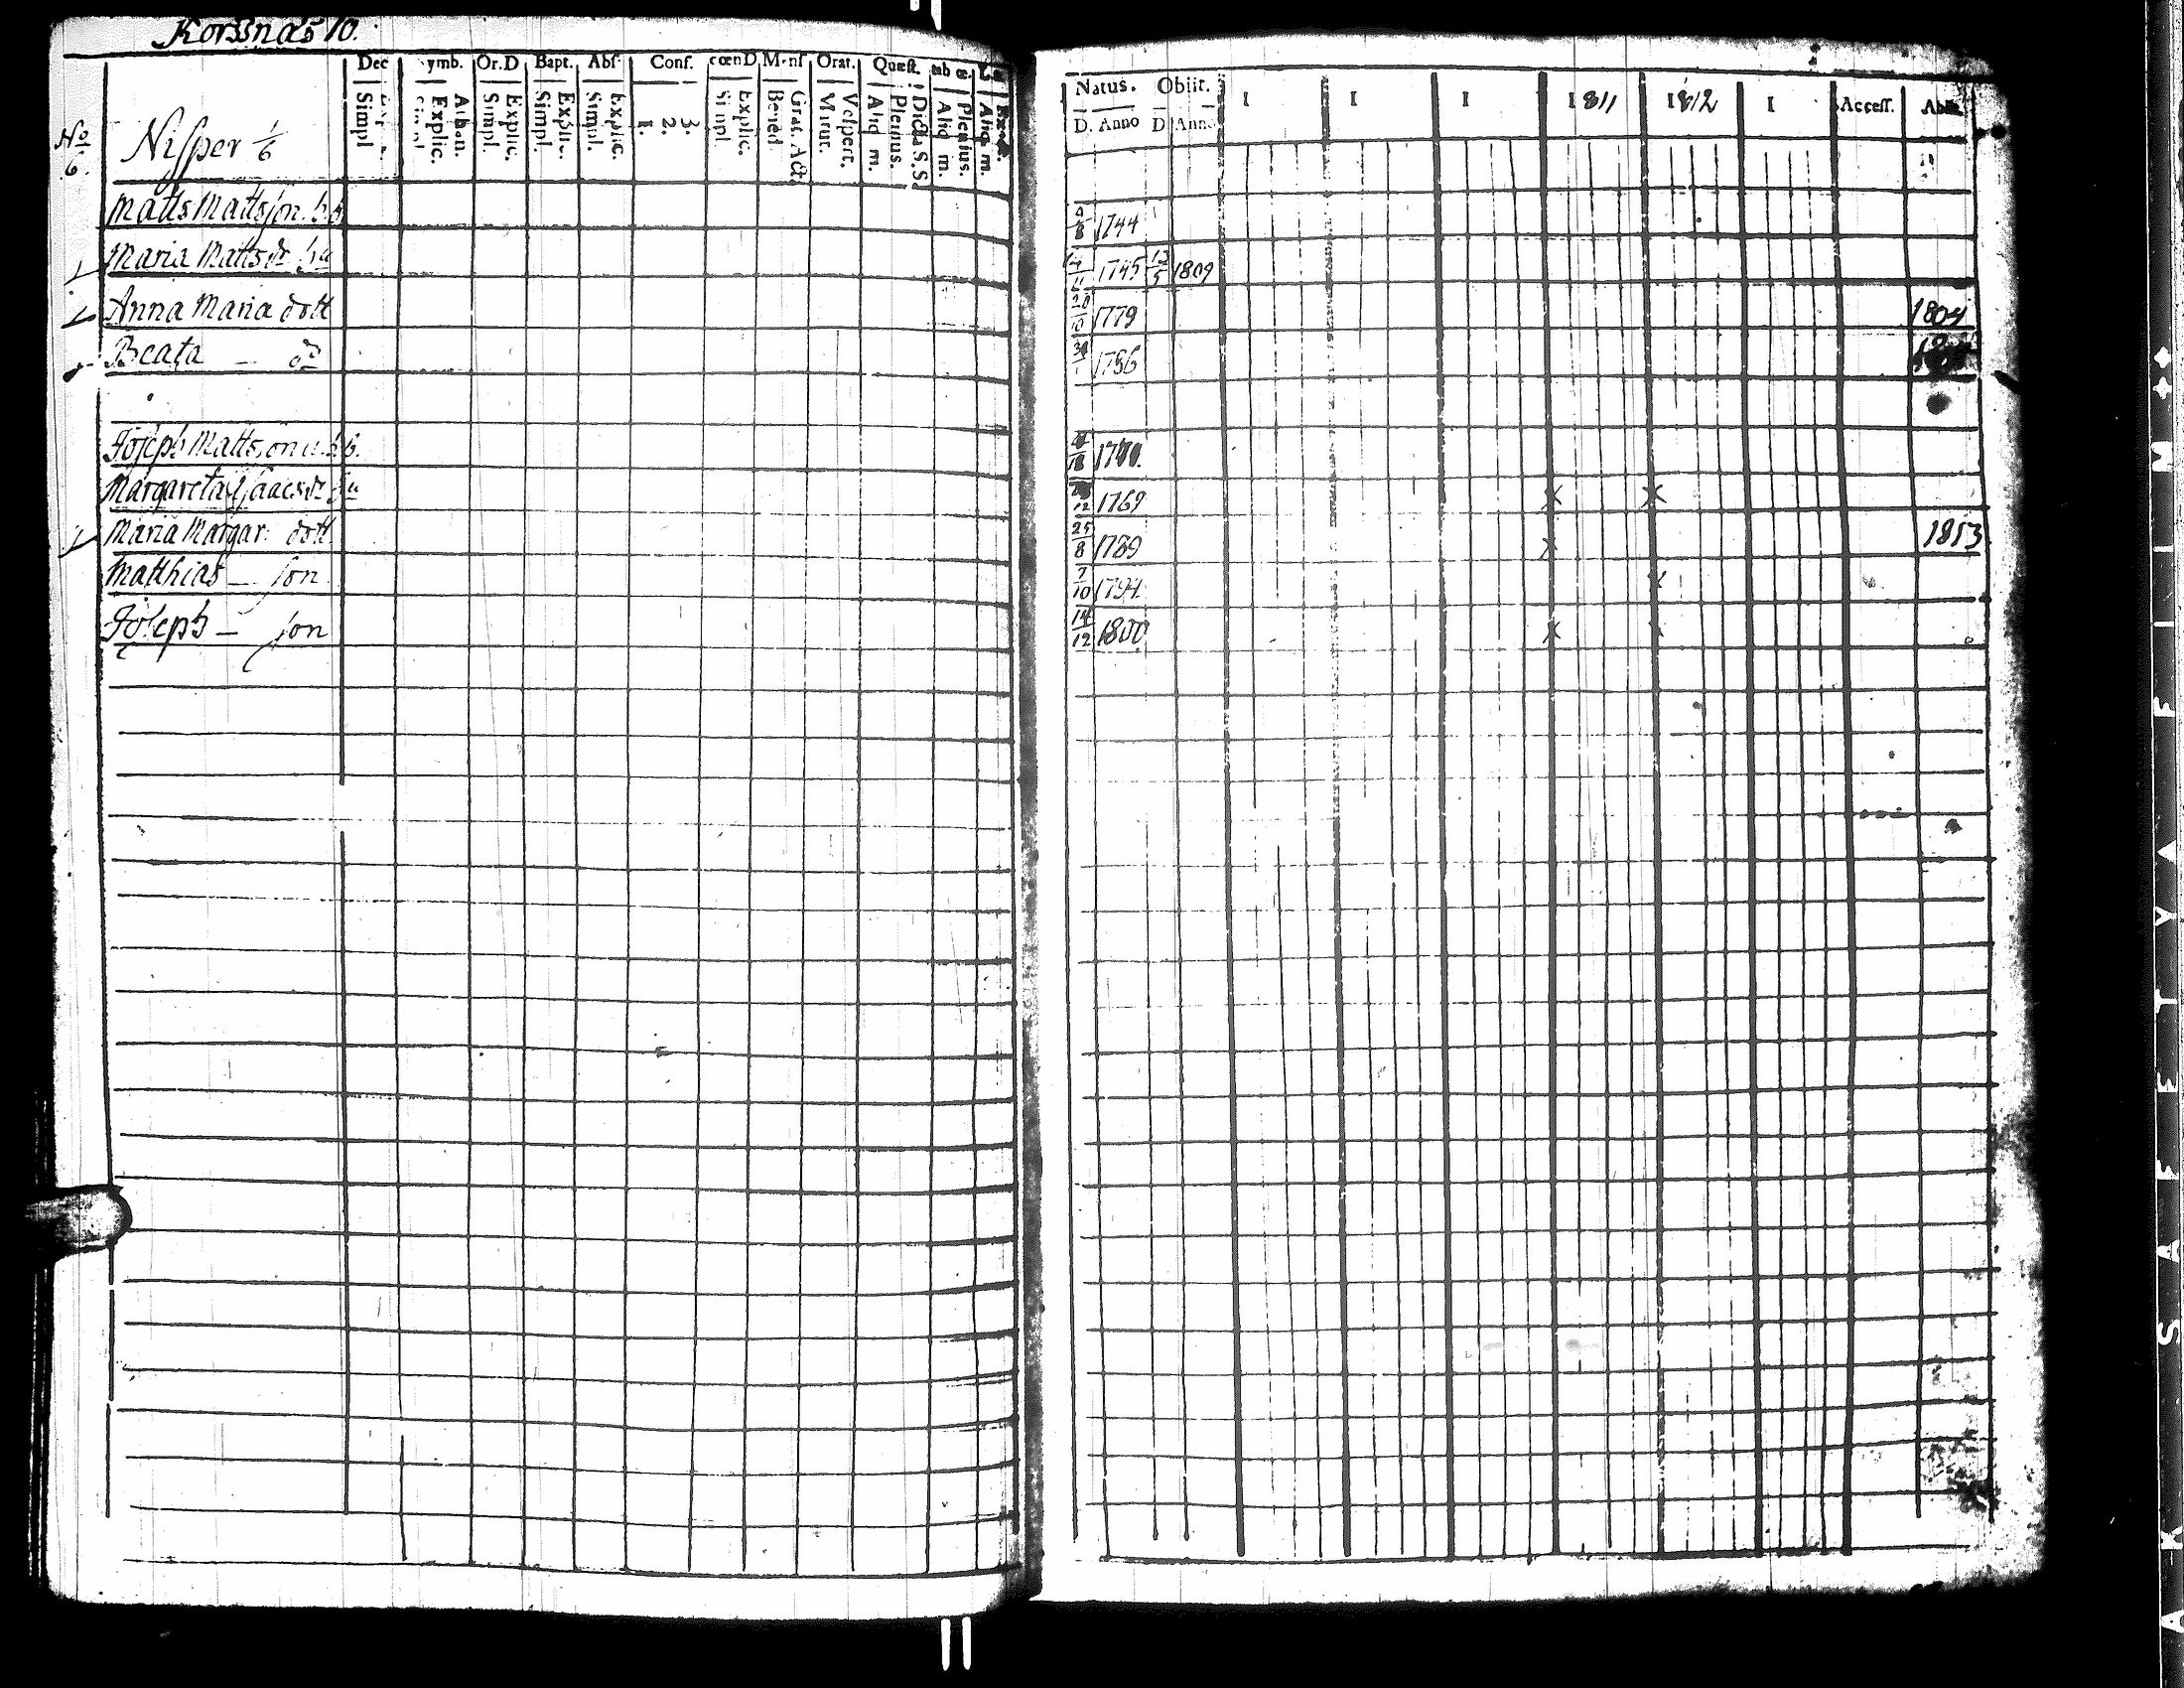 Korssnäs 10.
Dec Symb. Or.D Bapt. Abs. Conf. cœnD Mens Orat. Quæst.
Simpl. Explic. Athan. Simpl. Explic. Simpl. Explic. Simpl. Explic. 1. 2. 3. Simpl. Explic. Bened. Grat. Act. Matut. Vespert. Aliq m. Plenius. Dicta S.S. Aliq m. Plenius. Aliq m.
No 6. Nisper 1/6
Matts Mattsson. b.b.
Maria Mattsdr hu
Anna Maria dott
Beata — do
Joseph Mattsson u. b.b.
Margareta Isaacsdr hu
Maria Margar: dott
Matthias — son
Joseph — son
Natus. Obiit. I I I 1811 1812 I Access. Abiit
D. Anno D Anno
1744
1745 12/5 1809
20/10 1779 1804
1786
1769 X X
25/8 1789 X 1813
7/10 1794 X
14/12 1800 X X
SÄÄFETYÅFILM